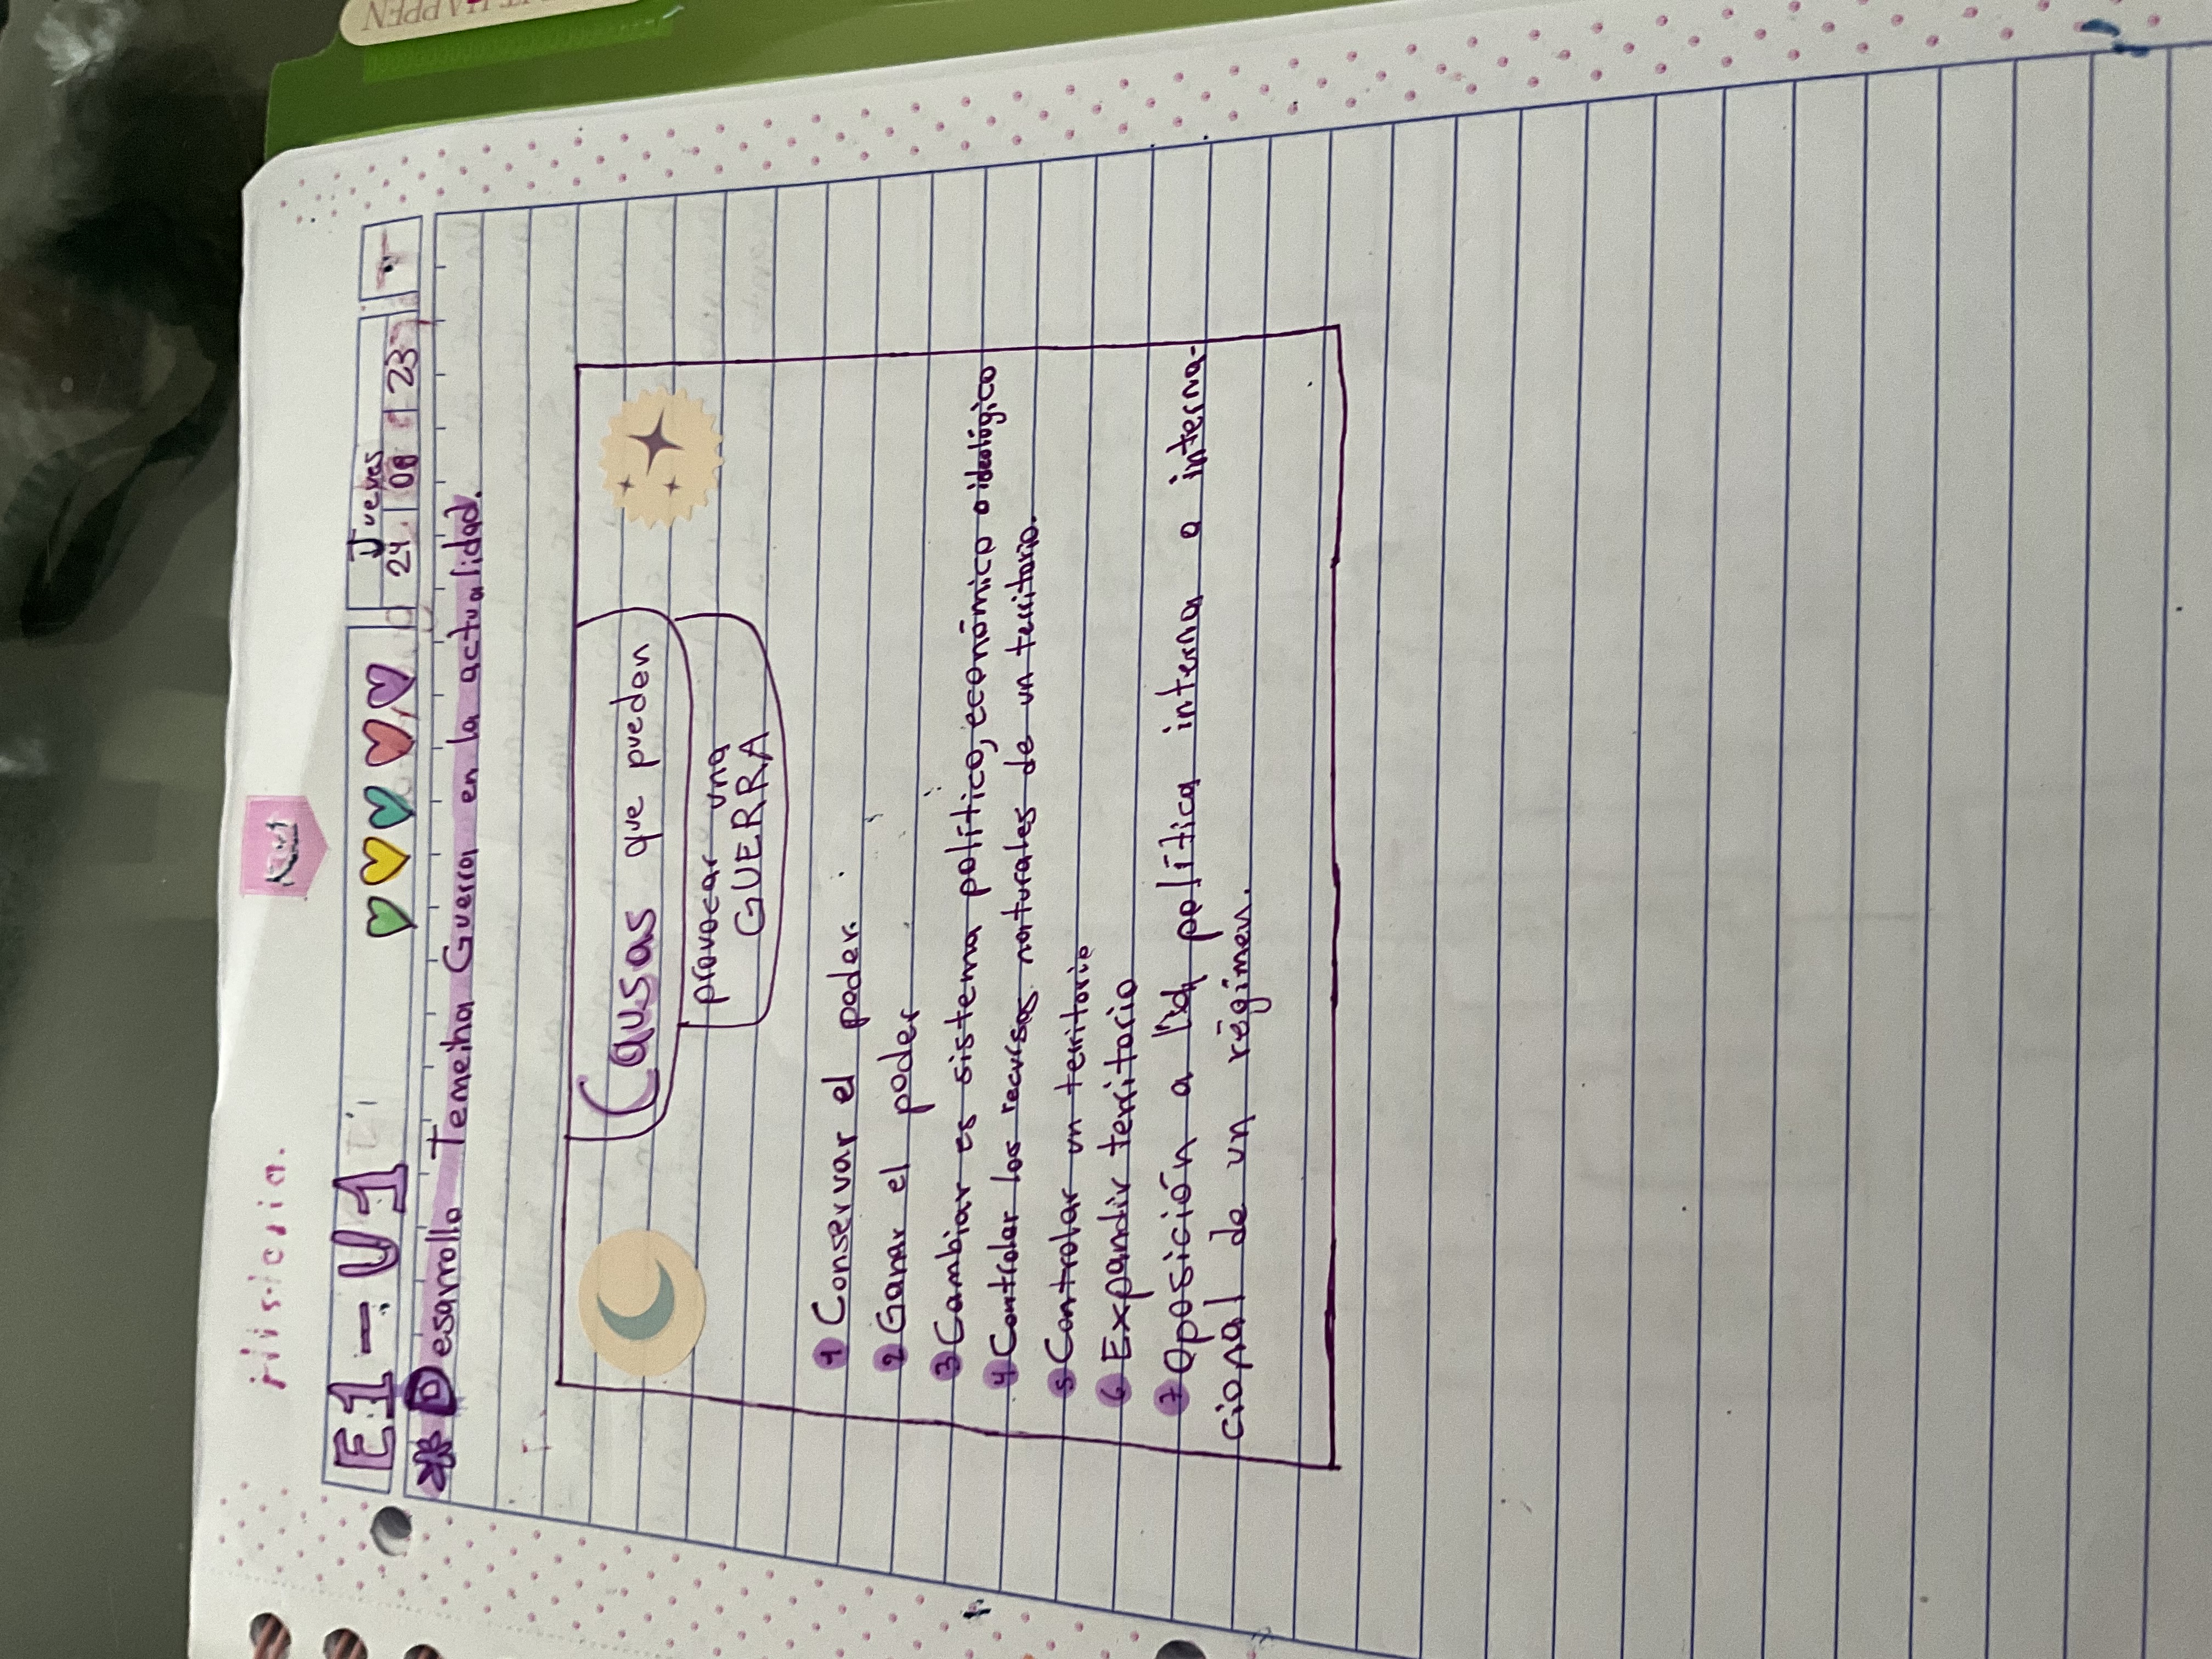 Historia.
E1 - U1
Jueves
24 08 23
* Desarrollo Temeiha Guerra en la actualidad.
Causas que pueden
provocar una
GUERRA
1 Conservar el poder.
2 Ganar el poder
3 Cambiar es sistema político, económico o ideológico
4 Controlar los recursos naturales de un territorio.
5 Controlar un territorio
6 Expandir territorio
7 Oposición a la política interna o interna-
cional de un régimen.
HAPPEN